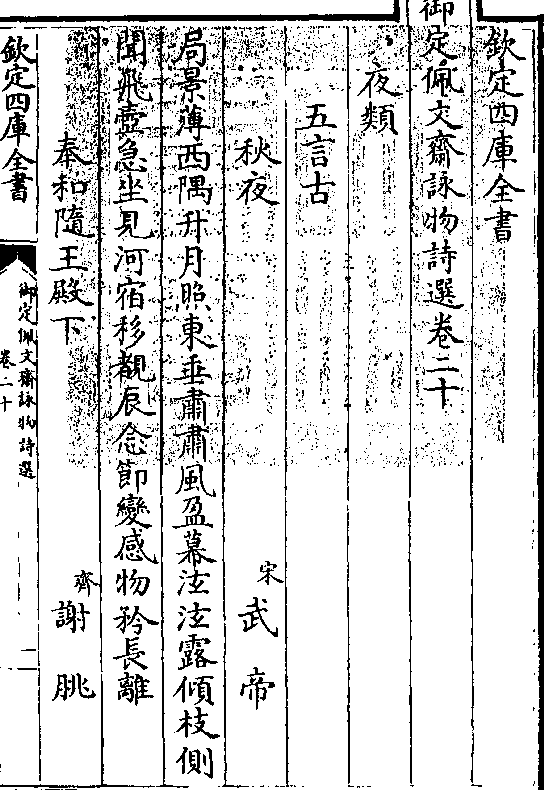 欽定四庫全書
御定佩文齋詠物詩選卷二十
夜類
五言古
秋夜 宋 武帝
局景薄西隅升月照東垂肅肅風盈幕泫泫露傾枝側
聞飛壼急坐見河宿移覩辰念節變感物矜長離
奉和隨王殿下 齊 謝朓
欽定四庫全書
御定佩文齋詠物詩選
卷二十
一